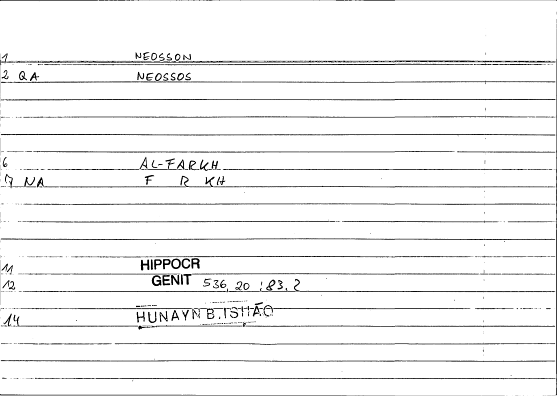 1 NEOSSON
2 QA NEOSSOS
6 AL-FARKH
7 NA F R KH
11 HIPPOCR
12 GENIT 536, 20 : 83, 2
14 HUNAYN B. ISḤĀQ